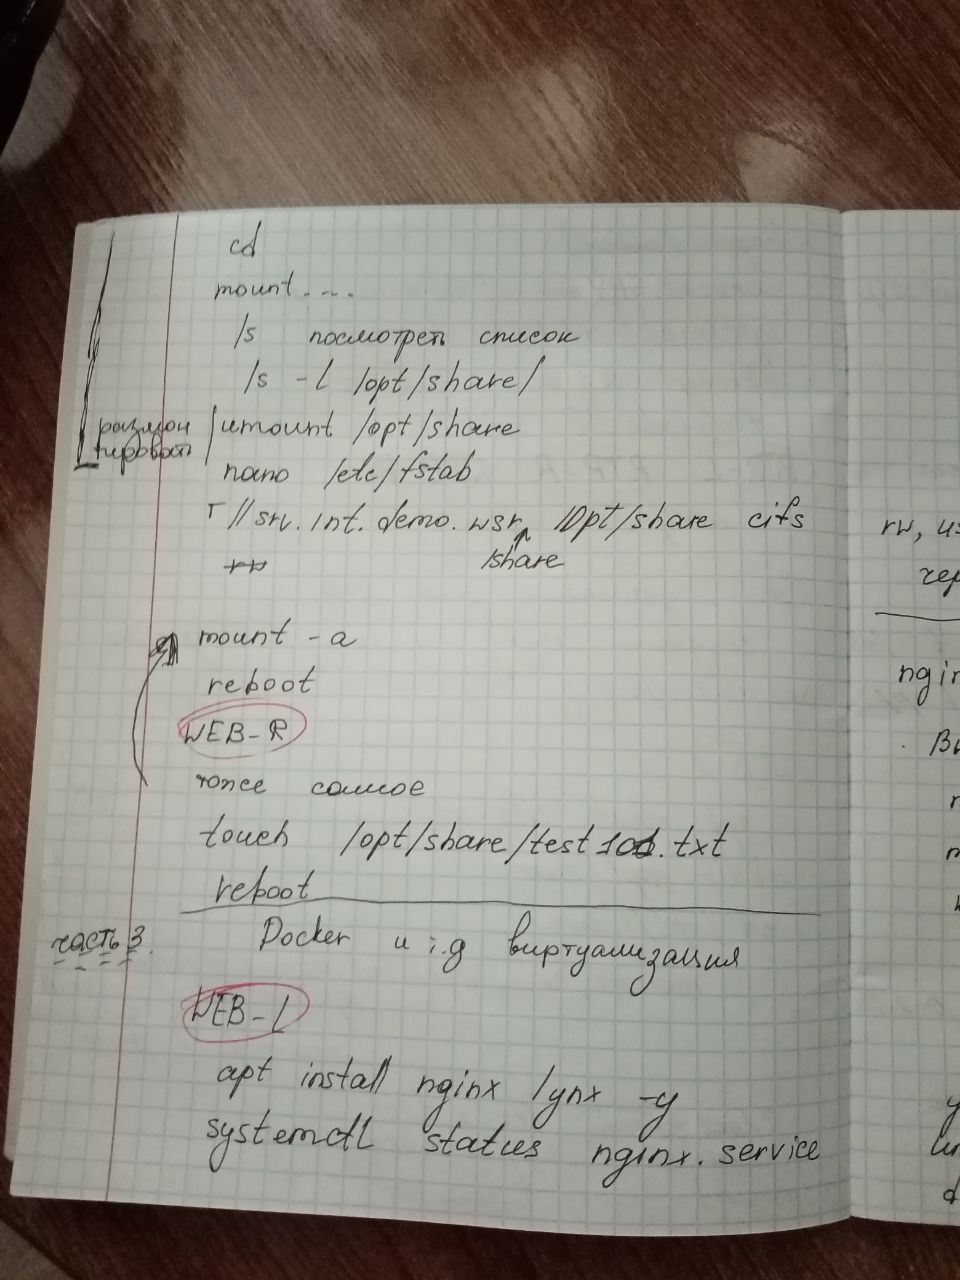 cd
mount....
ls посмотреть список
ls -l /opt/share/
размон
тировать
umount /opt/share
nano /etc/fstab
//srv.int.demo.wsr /opt/share cifs
/share
rw, us
чер
mount -a
reboot
WEB-R
тоже самое
touch /opt/share/test101.txt
reboot
часть 3.
Docker и i.g виртуализация
WEB-L
apt install nginx lynx -y
systemctl status nginx.service
ngin